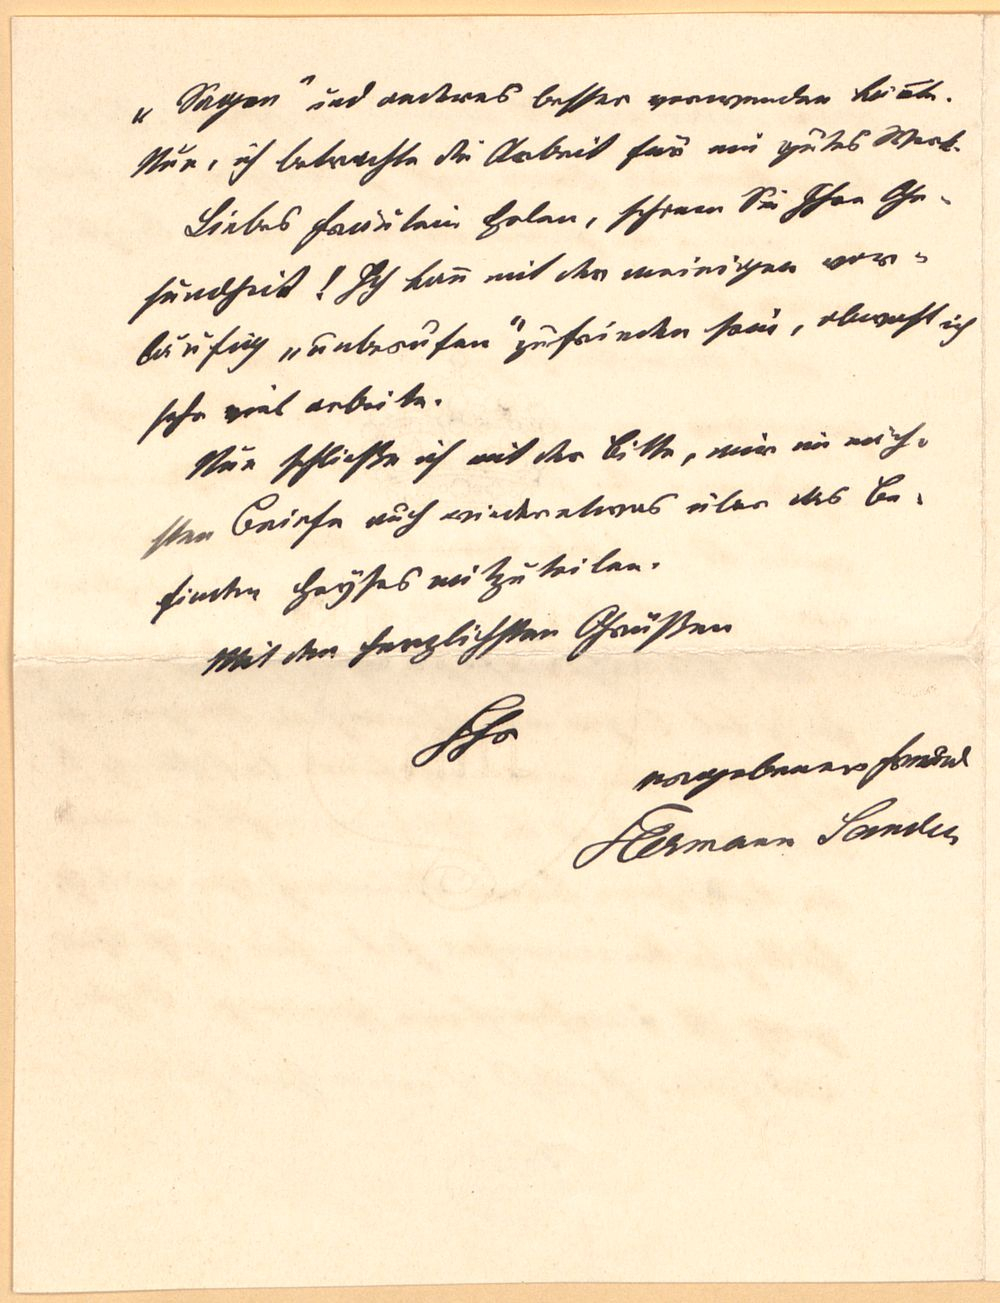 „Sagen" und anderes besser verwenden könnte.
Nun, ich betrachte die Arbeit für ein gutes Werk.
Liebes Fräulein Helen, schonen Sie Ihre Ge-
sundheit! Ich kann mit der meinigen vor-
läufig „unberufen" zufrieden sein, obwohl ich
sehr viel arbeite.
Nun schließe ich mit der Bitte, mir im näch-
sten Briefe auch wieder etwas über das Be-
finden Heyses mitzuteilen.
Mit den herzlichsten Grüßen
Ihr
ergebener Freund
Hermann Sander